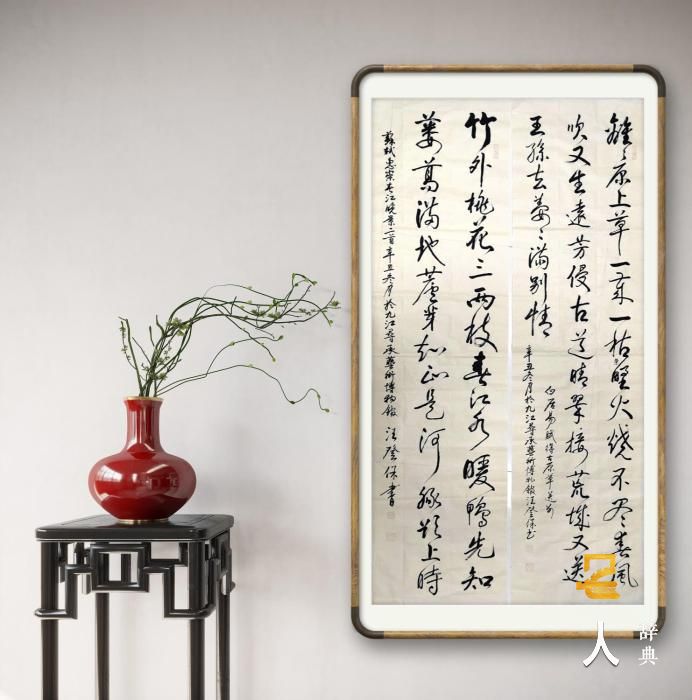 離〻原上草一歲一枯野火燒不尽春風
吹又生遠芳侵古道晴翠接荒城又送
王孫去萋〻滿別情
白居易賦得古原草送別
辛丑冬月於九江尋承藝術博物館汪登保书
竹外桃花三兩枝春江水暖鴨先知
蔞蒿滿地蘆芽短正是河豚欲上時
蘇軾惠崇春江晚景二首辛丑冬月於九江尋承藝術博物館 汪登保書
名人
辞典